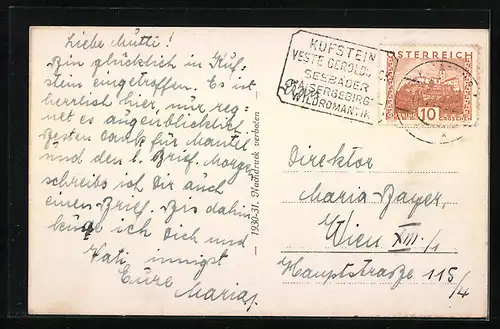 Liebe Mutti!
Bin glücklich in Kuf-
stein eingetroffen. Es ist
herrlich hier, nur reg-
net es augenblicklich.
Besten Dank für Mantel
und den l. Brief. Morgen
schreibe ich Dir auch
einen Brief. Bis dahin
küße ich Dich und
Vati innigst
Eure Maria.
1930-31. Nachdruck verboten
KUFSTEIN
VESTE GEROLDSECK
SEEBÄDER
KAISERGEBIRGE
WILDROMANTIK
ÖSTERREICH
10 10
GROSCHEN
Direktor
Maria Bayer,
Wien XIII/1
Hauptstraße 115/4